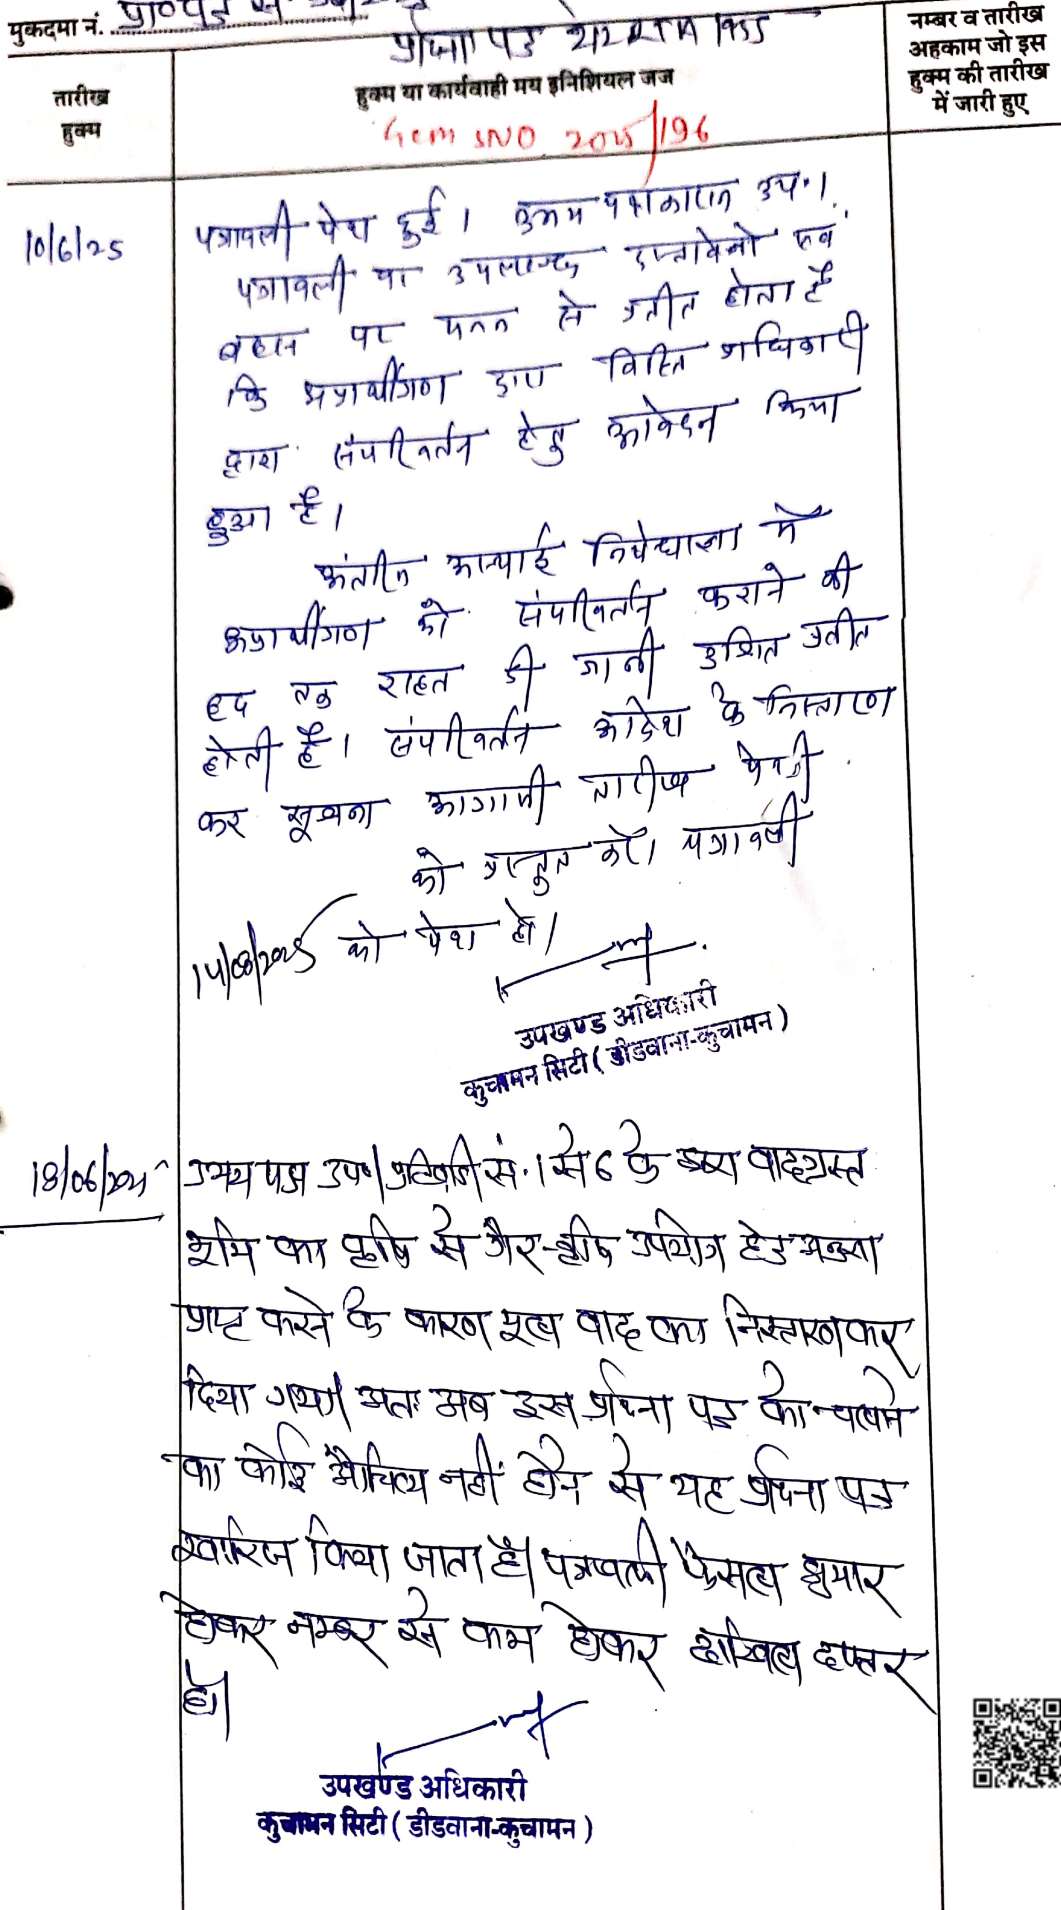 मुकदमा नं. प्रा०पत्र सं.
प्रार्थना पत्र
तारीख हुक्म
हुक्म या कार्यवाही मय इनिशियल जज
नम्बर व तारीख अहकाम जो इस हुक्म की तारीख में जारी हुए
Gcm SNO 2025/196
10/6/25
पत्रावली पेश हुई। उभय पक्षकारान उप.।
पत्रावली पर उपलब्ध दस्तावेजो एवं
बहस पर मनन से प्रतीत होता है
कि अप्रार्थीगण द्वारा विहित अधिकारी
द्वारा संपरिवर्तन हेतु आवेदन किया
हुआ है।
अंतरिम अस्थाई निषेधाज्ञा में
अप्रार्थीगण को संपरिवर्तन कराने की
हद तक राहत दी जानी उचित प्रतीत
होती है। संपरिवर्तन आदेश के निस्तारण
कर सूचना आगामी तारीख पेशी
को प्रस्तुत करें। पत्रावली
14/08/2025 को पेश हो।
उपखण्ड अधिकारी
कुचामन सिटी (डीडवाना-कुचामन)
18/06/2025
उभय पक्ष उप०। प्रतिवादी सं. 1 से 6 के द्वारा वादग्रस्त
भूमि का कृषि से गैर-कृषि उपयोग हेतु
प्राप्त करने के कारण मूल वाद का निस्तारण कर
दिया गया। अतः अब इस प्रार्थना पत्र को चलाने
का कोई औचित्य नहीं होने से यह प्रार्थना पत्र
खारिज किया जाता है। पत्रावली फैसल शुमार
होकर नम्बर से कम होकर दाखिल दफ्तर
हो।
उपखण्ड अधिकारी
कुचामन सिटी (डीडवाना-कुचामन)